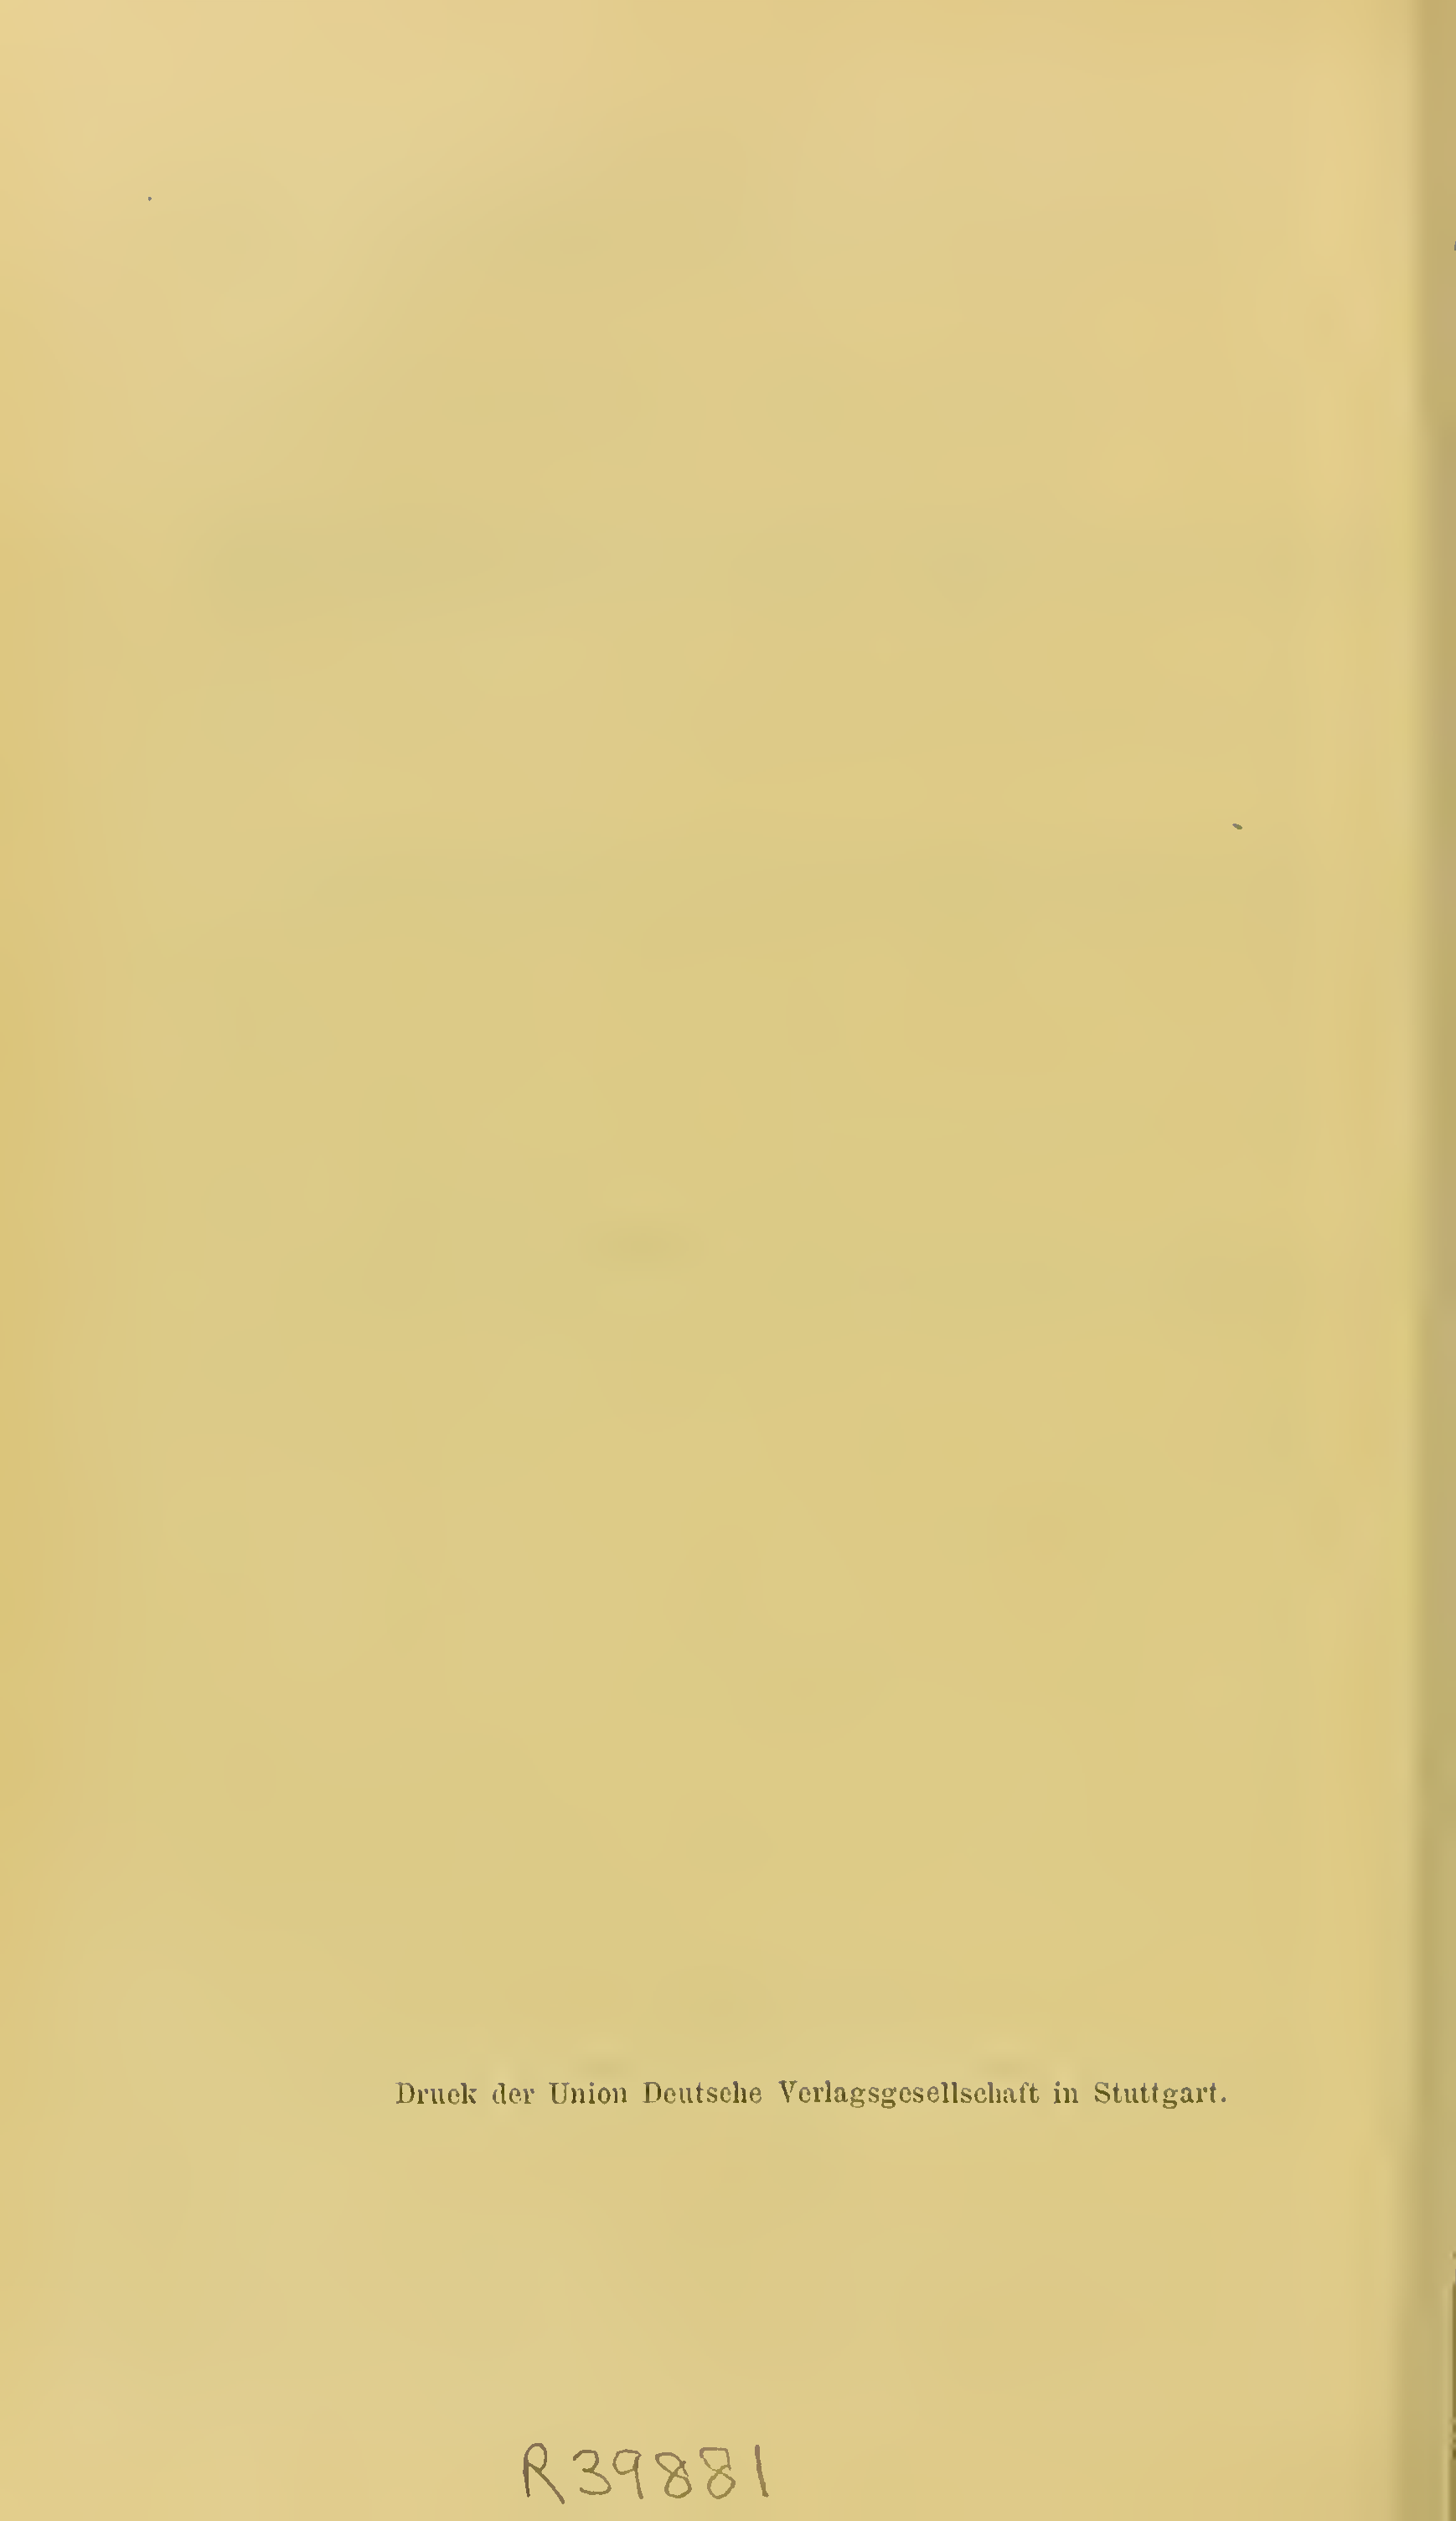 Druck der Union Deutsche Verlagsgesellschaft in Stuttgart.
R39881